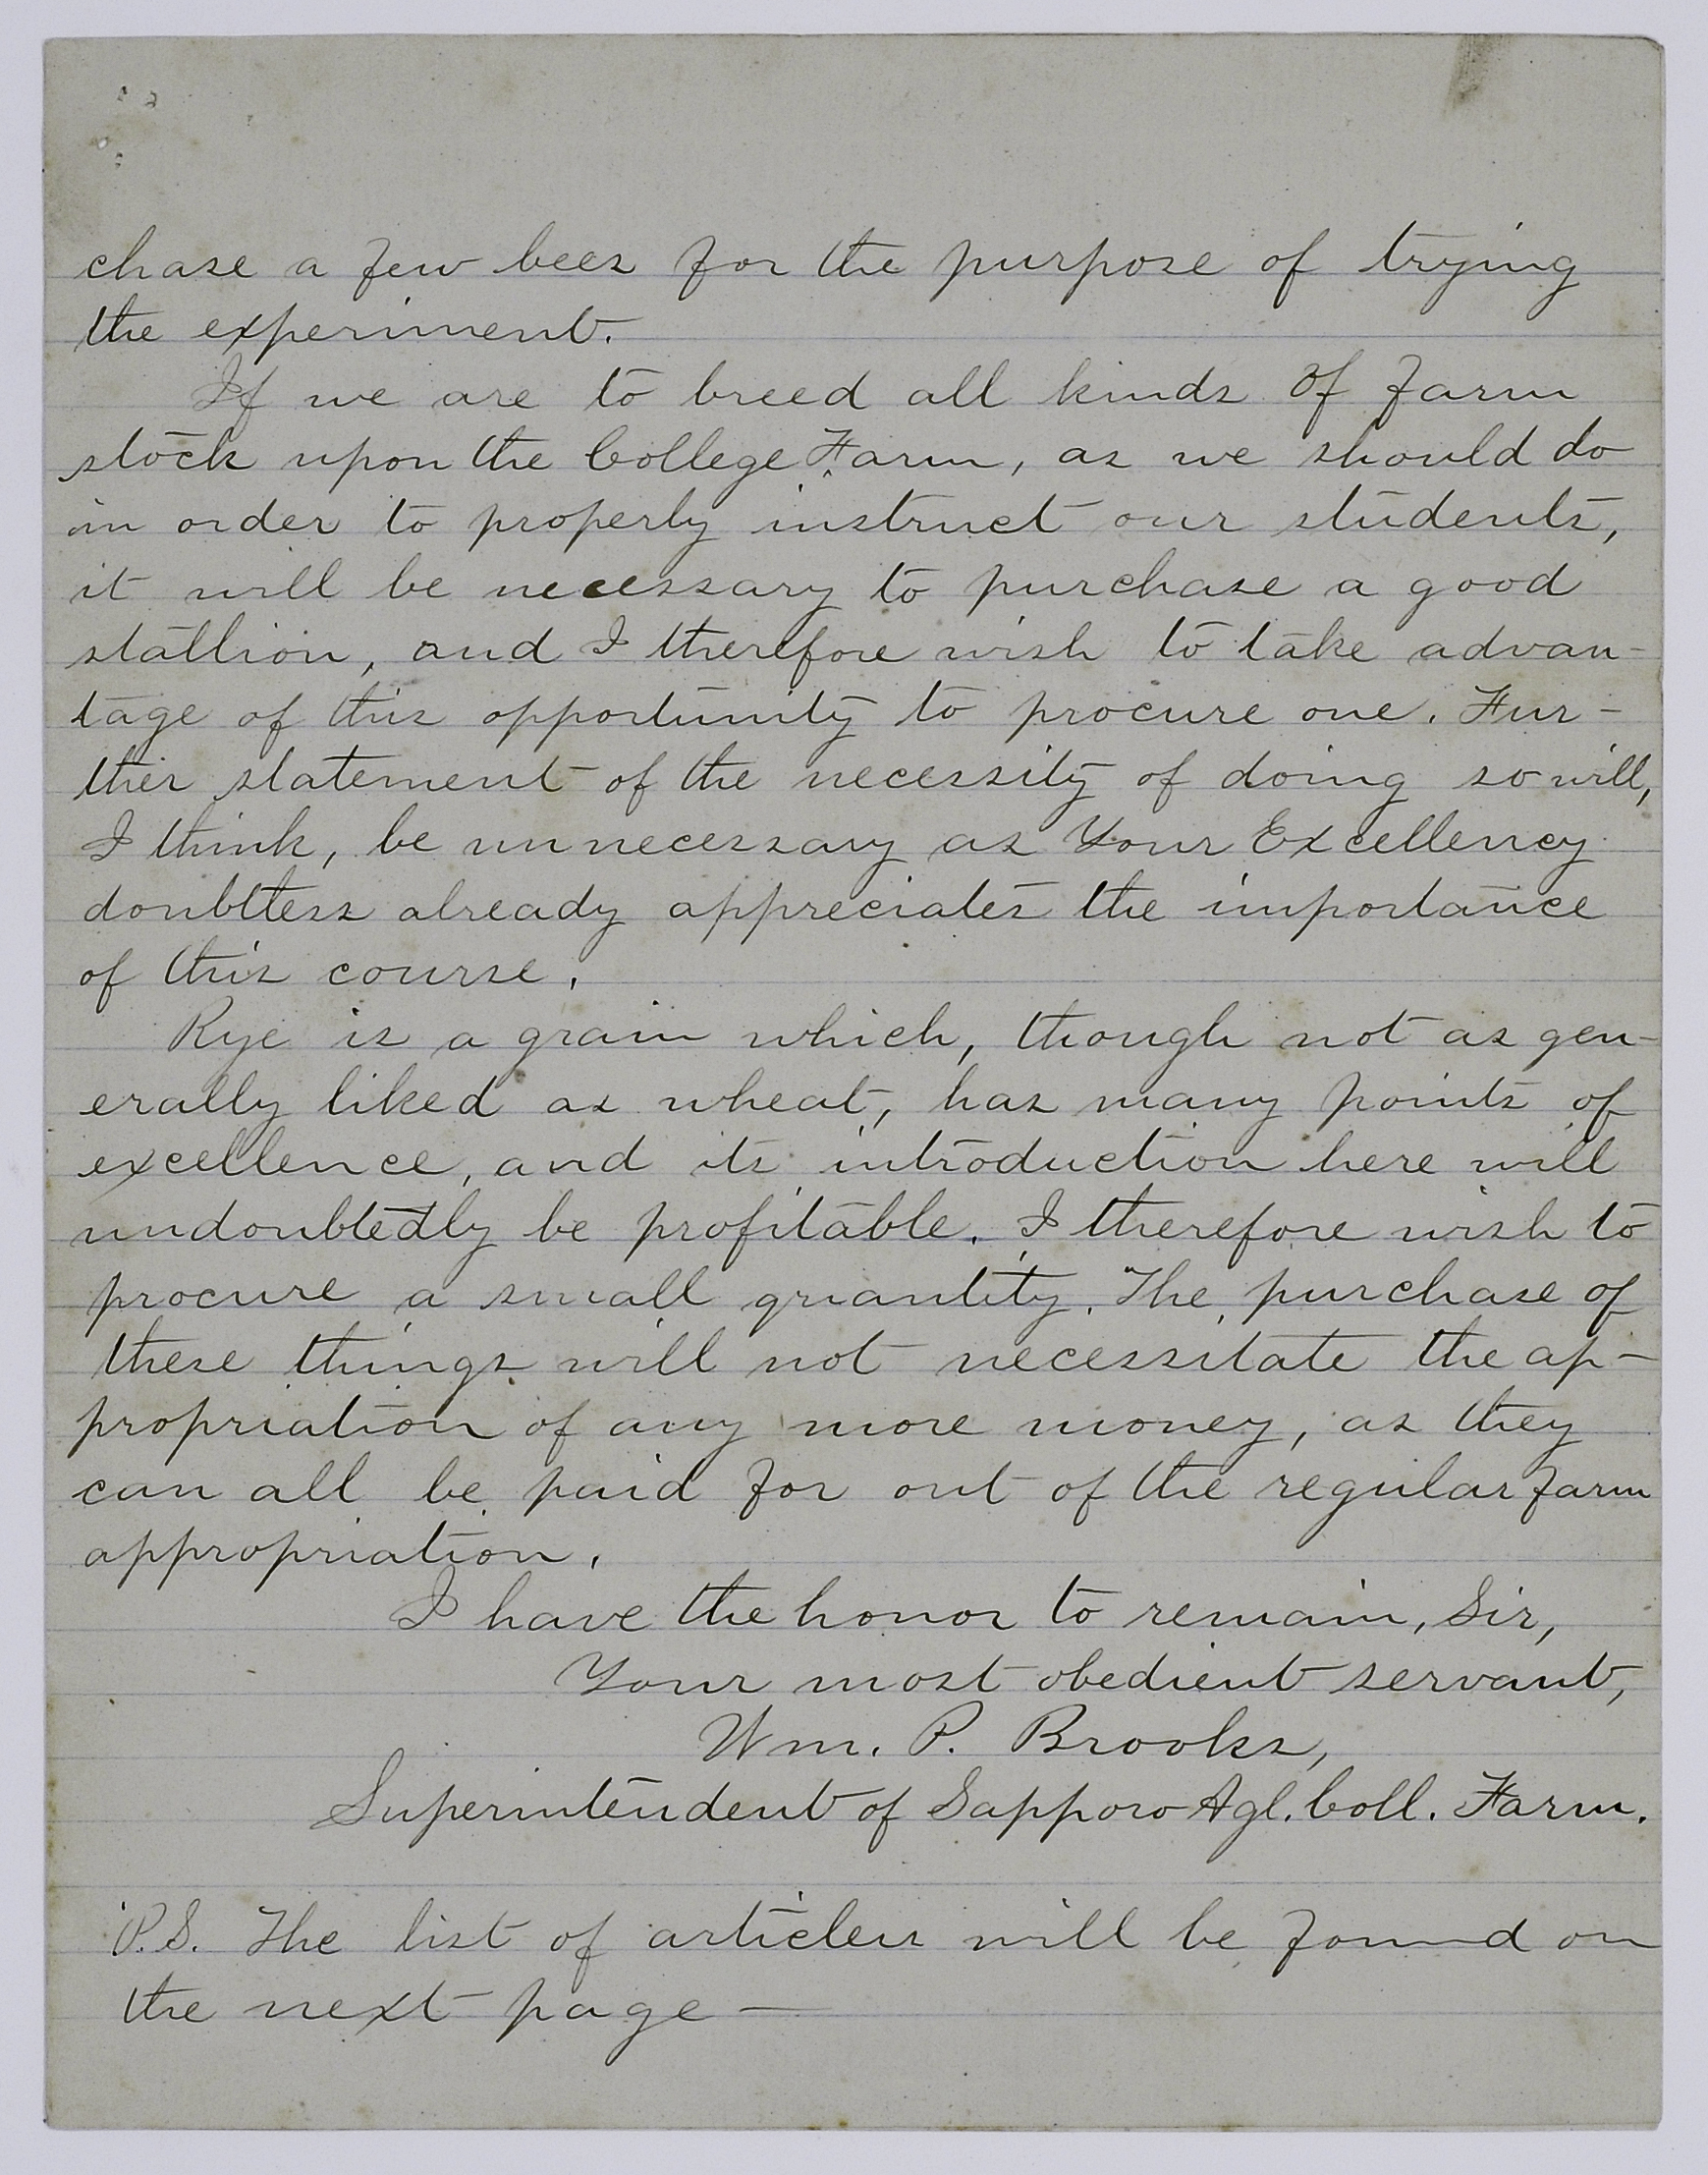 chase a few bees for the purpose of trying
the experiment.
If we are to breed all kinds of farm
stock upon the College Farm, as we should do
in order to properly instruct our students,
it will be necessary to purchase a good
stallion, and I therefore wish to take advan-
tage of this opportunity to procure one. Fur-
ther statement of the necessity of doing so will,
I think, be unnecessary as Your Excellency
doubtless already appreciates the importance
of this course.
Rye is a grain which, though not as gen-
erally liked as wheat, has many points of
excellence, and its introduction here will
undoubtedly be profitable. I therefore wish to
procure a small quantity. The purchase of
these things will not necessitate the ap-
propriation of any more money, as they
can all be paid for out of the regular farm
appropriation.
I have the honor to remain, Sir,
Your most obedient servant,
Wm. P. Brooks,
Superintendent of Sapporo Agl. Coll. Farm.
P.S. The list of articles will be found on
the next page —